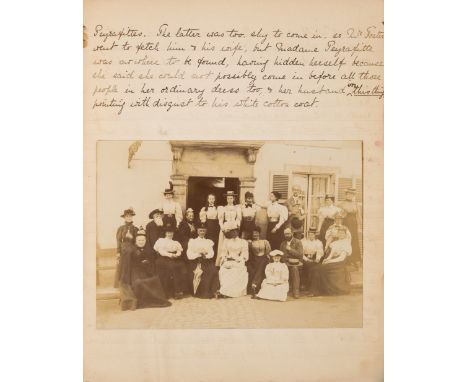 Peyrafittes. The latter was too shy to come in, so Mr Foster
went to fetch him & his wife, but Madame Peyrafitte
was nowhere to be found, having hidden herself because
she said she could not possibly come in before all those
people in her ordinary dress too, & her husband
pointing with disgust to his white cotton coat.